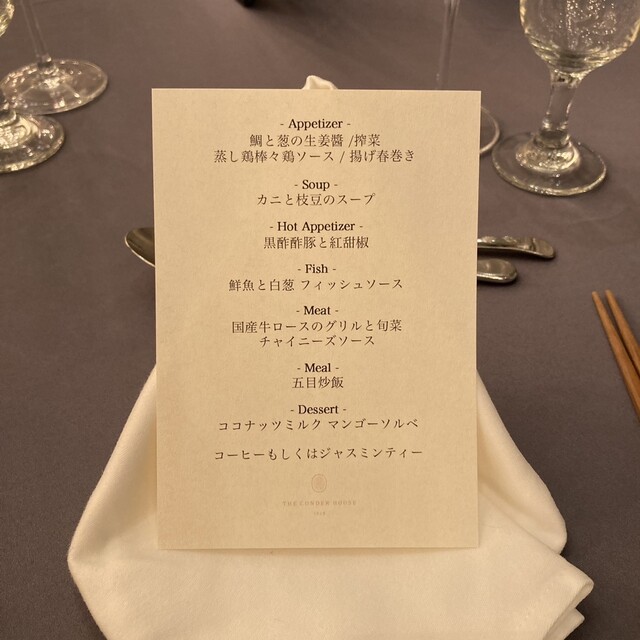 - Appetizer -
鯛と葱の生姜醬 /搾菜
蒸し鶏棒々鶏ソース / 揚げ春巻き
- Soup -
カニと枝豆のスープ
- Hot Appetizer -
黒酢酢豚と紅甜椒
- Fish -
鮮魚と白葱 フィッシュソース
- Meat -
国産牛ロースのグリルと旬菜
チャイニーズソース
- Meal -
五目炒飯
- Dessert -
ココナッツミルク マンゴーソルベ
コーヒーもしくはジャスミンティー
THE CONDER HOUSE